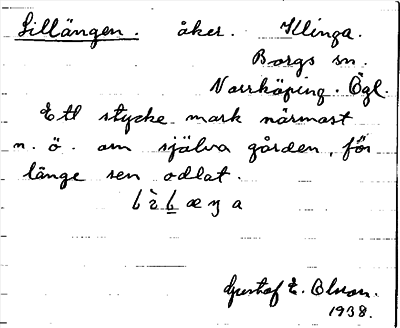 Lillängen. åker. Klinga.
Borgs sn.
Norrköping. Ögl.
Ett stycke mark närmast
n. ö. om själva gården, för
länge sen odlat.
Gustaf E. Olson.
1938.